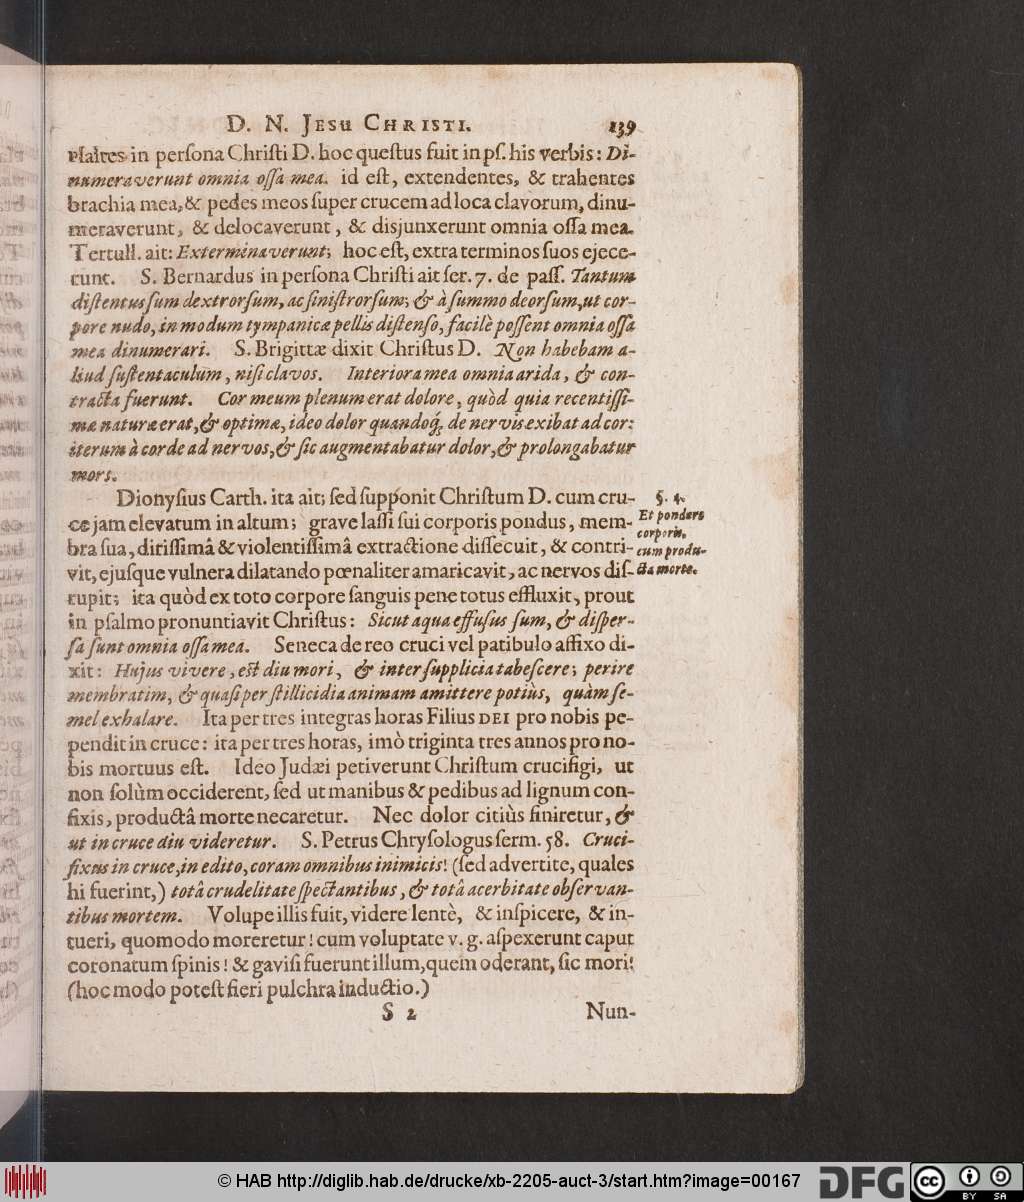 D. N. JESU CHRISTI. 139
psaltes in persona Christi D. hoc questus fuit in ps. his verbis: Di-
numeraverunt omnia ossa mea. id est, extendentes, & trahentes
brachia mea, & pedes meos super crucem ad loca clavorum, dinu-
meraverunt, & delocaverunt, & disjunxerunt omnia ossa mea.
Tertull. ait: Exterminaverunt; hoc est, extra terminos suos ejece-
runt. S. Bernardus in persona Christi ait ser. 7. de pass. Tantum
distentus sum dextrorsum, ac sinistrorsum; & à summo deorsum, ut cor-
pore nudo, in modum tympanicæ pellis distenso, facilè possent omnia ossa
mea dinumerari. S. Brigittæ dixit Christus D. Non habebam a-
liud sustentaculum, nisi clavos. Interiora mea omnia arida, & con-
tracta fuerunt. Cor meum plenum erat dolore, quòd quia recentissi-
mæ naturæ erat, & optimæ, ideo dolor quandoq́; de nervis exibat ad cor:
iterum à corde ad nervos, & sic augmentabatur dolor, & prolongabatur
mors.
Dionysius Carth. ita ait; sed supponit Christum D. cum cru-
ce jam elevatum in altum; grave lassi sui corporis pondus, mem-
bra sua, dirissimâ & violentissimâ extractione dissecuit, & contri-
vit, ejusque vulnera dilatando pœnaliter amaricavit, ac nervos dis-
rupit; ita quòd ex toto corpore sanguis pene totus effluxit, prout
in psalmo pronuntiavit Christus: Sicut aqua effusus sum, & disper-
sa sunt omnia ossa mea. Seneca de reo cruci vel patibulo affixo di-
xit: Hujus vivere, est diu mori, & inter supplicia tabescere; perire
membratim, & quasi per stillicidia animam amittere potiùs, quàm se-
mel exhalare. Ita per tres integras horas Filius DEI pro nobis pe-
pendit in cruce: ita per tres horas, imò triginta tres annos pro no-
bis mortuus est. Ideo Judæi petiverunt Christum crucifigi, ut
non solùm occiderent, sed ut manibus & pedibus ad lignum con-
fixis, productâ morte necaretur. Nec dolor citiùs finiretur, &
ut in cruce diu videretur. S. Petrus Chrysologus serm. 58. Cruci-
fixus in cruce, in edito, coram omnibus inimicis! (sed advertite, quales
hi fuerint,) totâ crudelitate spectantibus, & totâ acerbitate observan-
tibus mortem. Volupe illis fuit, videre lentè, & inspicere, & in-
tueri, quomodo moreretur! cum voluptate v. g. aspexerunt caput
coronatum spinis! & gavisi fuerunt illum, quem oderant, sic mori!
(hoc modo potest fieri pulchra inductio.)
S 2 Nun-
§. 4.
Et pondere
corporis,
cum produ-
cta morte.
© HAB http://diglib.hab.de/drucke/xb-2205-auct-3/start.htm?image=00167
DFG
cc BY SA